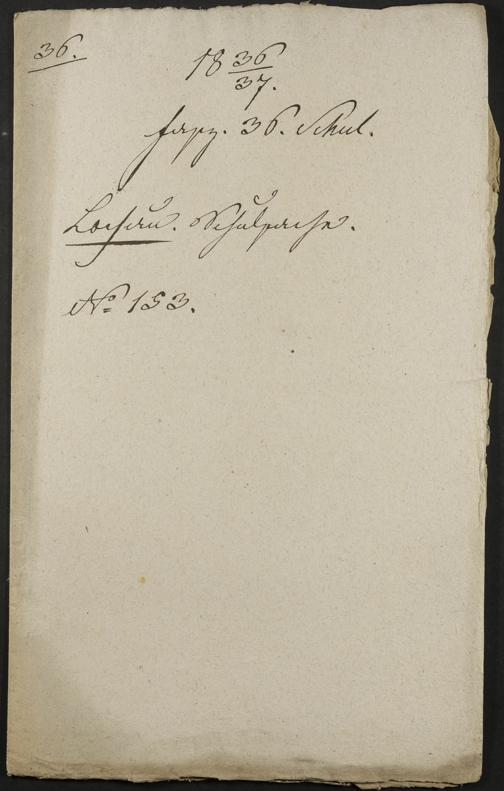 36.
18 36/37.
Fasz. 36. Schul.
Lochau. Schulsache.
No 153.